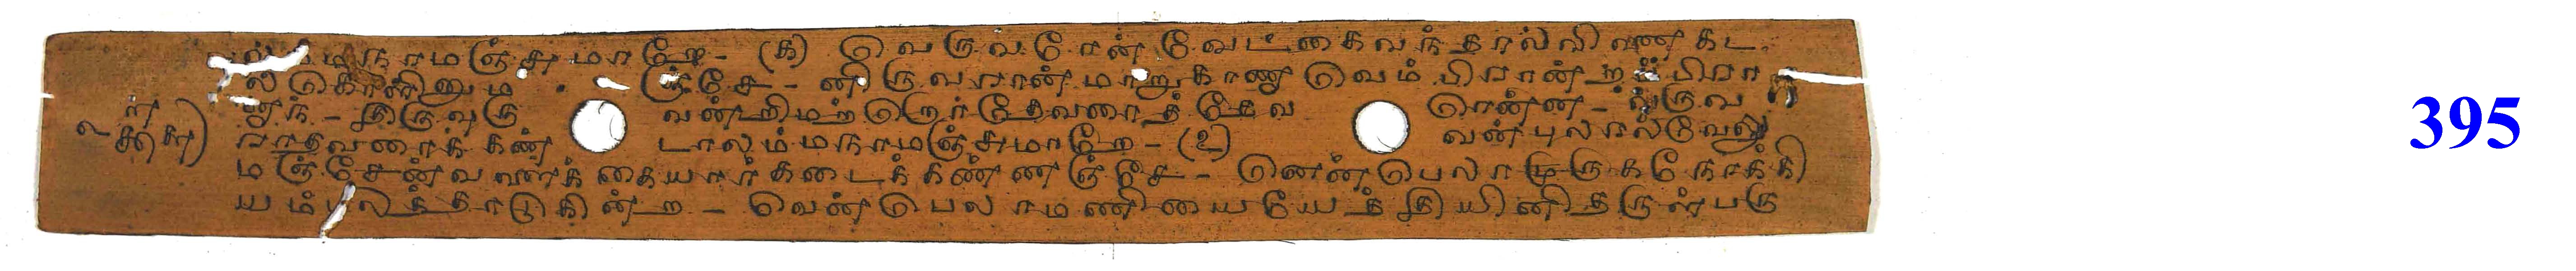 ல்ம்மநாமஞ்சுமாறே - (௧) வெருவரேன் வேட்கைவந்தால்வினைகட
ல்கொளினும ஞ்சே - னிருவரான்மாறுகாணா வெம்பிரான்றம்பிரா
னாந் - திருவுரு வன்றிமற்றொர்தேவரைத்தேவ ரென்ன - வருவ
ராதவரைக்கண் டாலம்மநாமஞ்சுமாறே - (௨) வன்புலால்வேலு
மஞ்சேன்வளைக்கையார்கடைக்கண்ணஞ்சே - னென்பெலாமுருகநோக்கி
யம்பலத்தாடுகின்ற - வென்பெலாமணியையேத்தியினிதருள்பரு
395